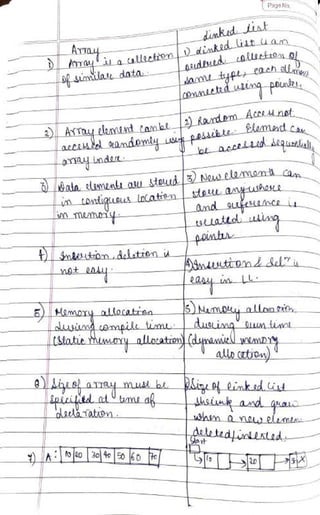 Page No.
Array
Linked List
1) Array is a collection
of similar data.
1) Linked list is an
ordered collection of
same type, each element
connected using pointer.
2) Array element can be
accessed randomly using
array index
2) Random Access not
possible. Element can
be accessed sequentially
3) Data elements are stored
in contiguous location
in memory.
3) New elements can
store anywhere
and reference is
created using
pointer
4) Insertion, deletion is
not easy.
4) Insertion & delⁿ is
easy in LL.
5) Memory allocation
during compile time.
(Static memory allocation)
5) Memory allocation
during run time
(dynamic memory
allocation)
6) Size of array must be
specified at time of
declaration.
6) Size of linked list
shrink and grow
when a new elemen
deleted/inserted.
7) A: 10 20 30 40 50 60 70
Start
10
20
X